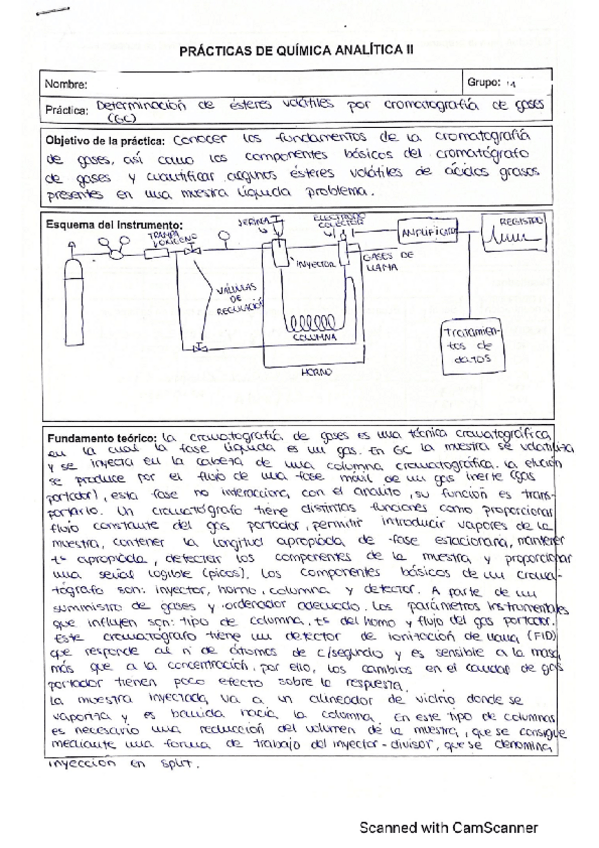 PRÁCTICAS DE QUÍMICA ANALÍTICA II
Nombre:
Grupo:
Práctica: Determinación de ésteres volátiles por cromatografía de gases
(GC)
Objetivo de la práctica: Conocer los fundamentos de la cromatografía
de gases, así como los componentes básicos del cromatógrafo
de gases y cuantificar algunos ésteres volátiles de ácidos grasos
presentes en una muestra líquida problema.
Esquema del Instrumento:
TRAMPA
OXÍGENO
JERINGA
ELECTRODO
COLECTOR
AMPLIFICADOR
REGISTRO
INYECTOR
GASES DE
LLAMA
VÁLVULAS
DE
REGULACIÓN
COLUMNA
HORNO
Tratamien-
tos de
datos
Fundamento teórico: La cromatografía de gases es una técnica cromatográfica,
en la cual la fase líquida es un gas. En GC la muestra se volatiliza
y se inyecta en la cabeza de una columna cromatográfica. La elución
se produce por el flujo de una fase móvil de un gas inerte (gas
portador), esta fase no interacciona con el analito, su función es trans-
portarlo. Un cromatógrafo tiene distintas funciones como proporcionar
flujo constante del gas portador, permitir introducir vapores de la
muestra, contener la longitud apropiada de fase estacionaria, mantener
tª apropiada, detectar los componentes de la muestra y proporcionar
una señal legible (picos). Los componentes básicos de un croma-
tógrafo son: inyector, horno, columna y detector. A parte de un
suministro de gases y ordenador adecuado. Los parámetros instrumentales
que influyen son: tipo de columna, tª del horno y flujo del gas portador.
Este cromatógrafo tiene un detector de ionización de llama (FID)
que responde al nº de átomos de C/segundo y es sensible a la masa
más que a la concentración, por ello, los cambios en el caudal de gas
portador tienen poco efecto sobre la respuesta.
La muestra inyectada va a un alineador de vidrio donde se
vaporiza y es barrida hacia la columna. En este tipo de columnas
es necesario una reducción del volumen de la muestra, que se consigue
mediante una forma de trabajo del inyector-divisor, que se denomina
inyección en split.
Scanned with CamScanner